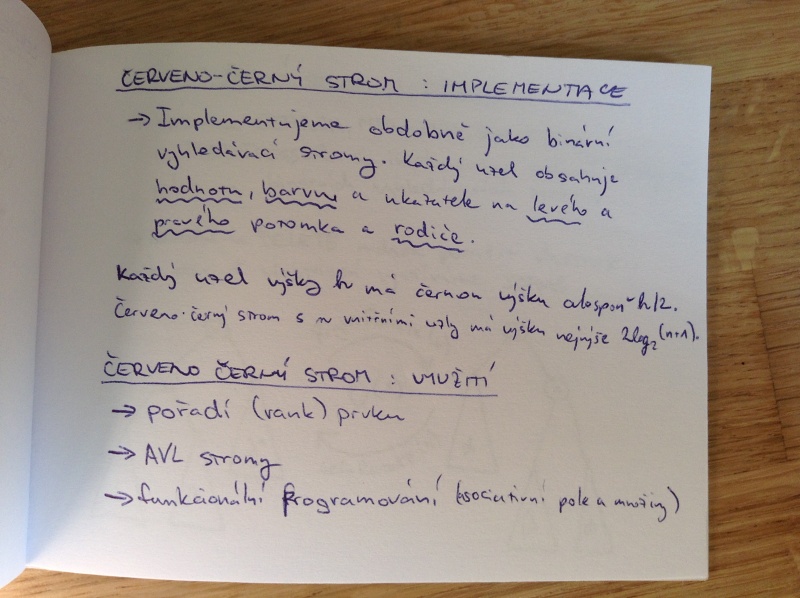 ČERVENO-ČERNÝ STROM : IMPLEMENTACE
→ Implementujeme obdobně jako binární
vyhledávací stromy. Každý uzel obsahuje
hodnotu, barvu a ukazatele na levého a
pravého potomka a rodiče.
Každý uzel výšky h má černou výšku alespoň h/2.
Červeno-černý strom s n vnitřními uzly má výšku nejvýše 2log₂(n+1).
ČERVENO ČERNÝ STROM : VYUŽITÍ
→ pořadí (rank) prvku
→ AVL stromy
→ funkcionální programování (asociativní pole a množiny)